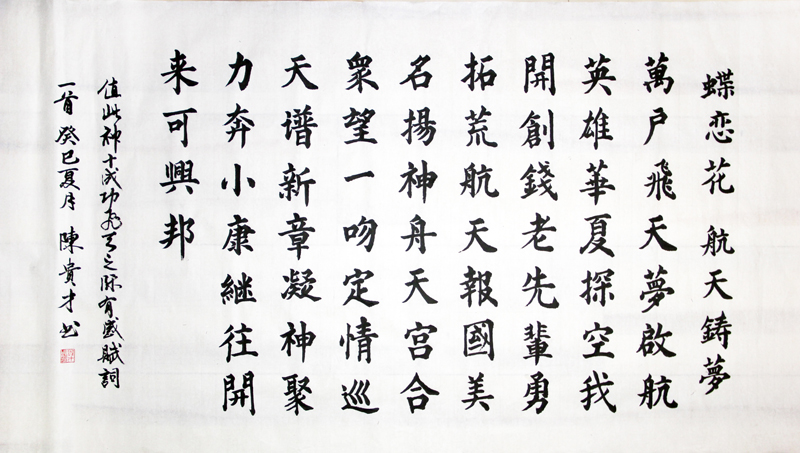 蝶恋花 航天鋳夢
萬户飛天夢啟航
英雄華夏探空我
開創錢老先輩勇
拓荒航天報國美
名揚神舟天宫合
衆望一吻定情巡
天谱新章凝神聚
力奔小康継往開
来可興邦
值此神十成功飛天之际有感賦詞
一首 癸巳夏月 陳貴才书